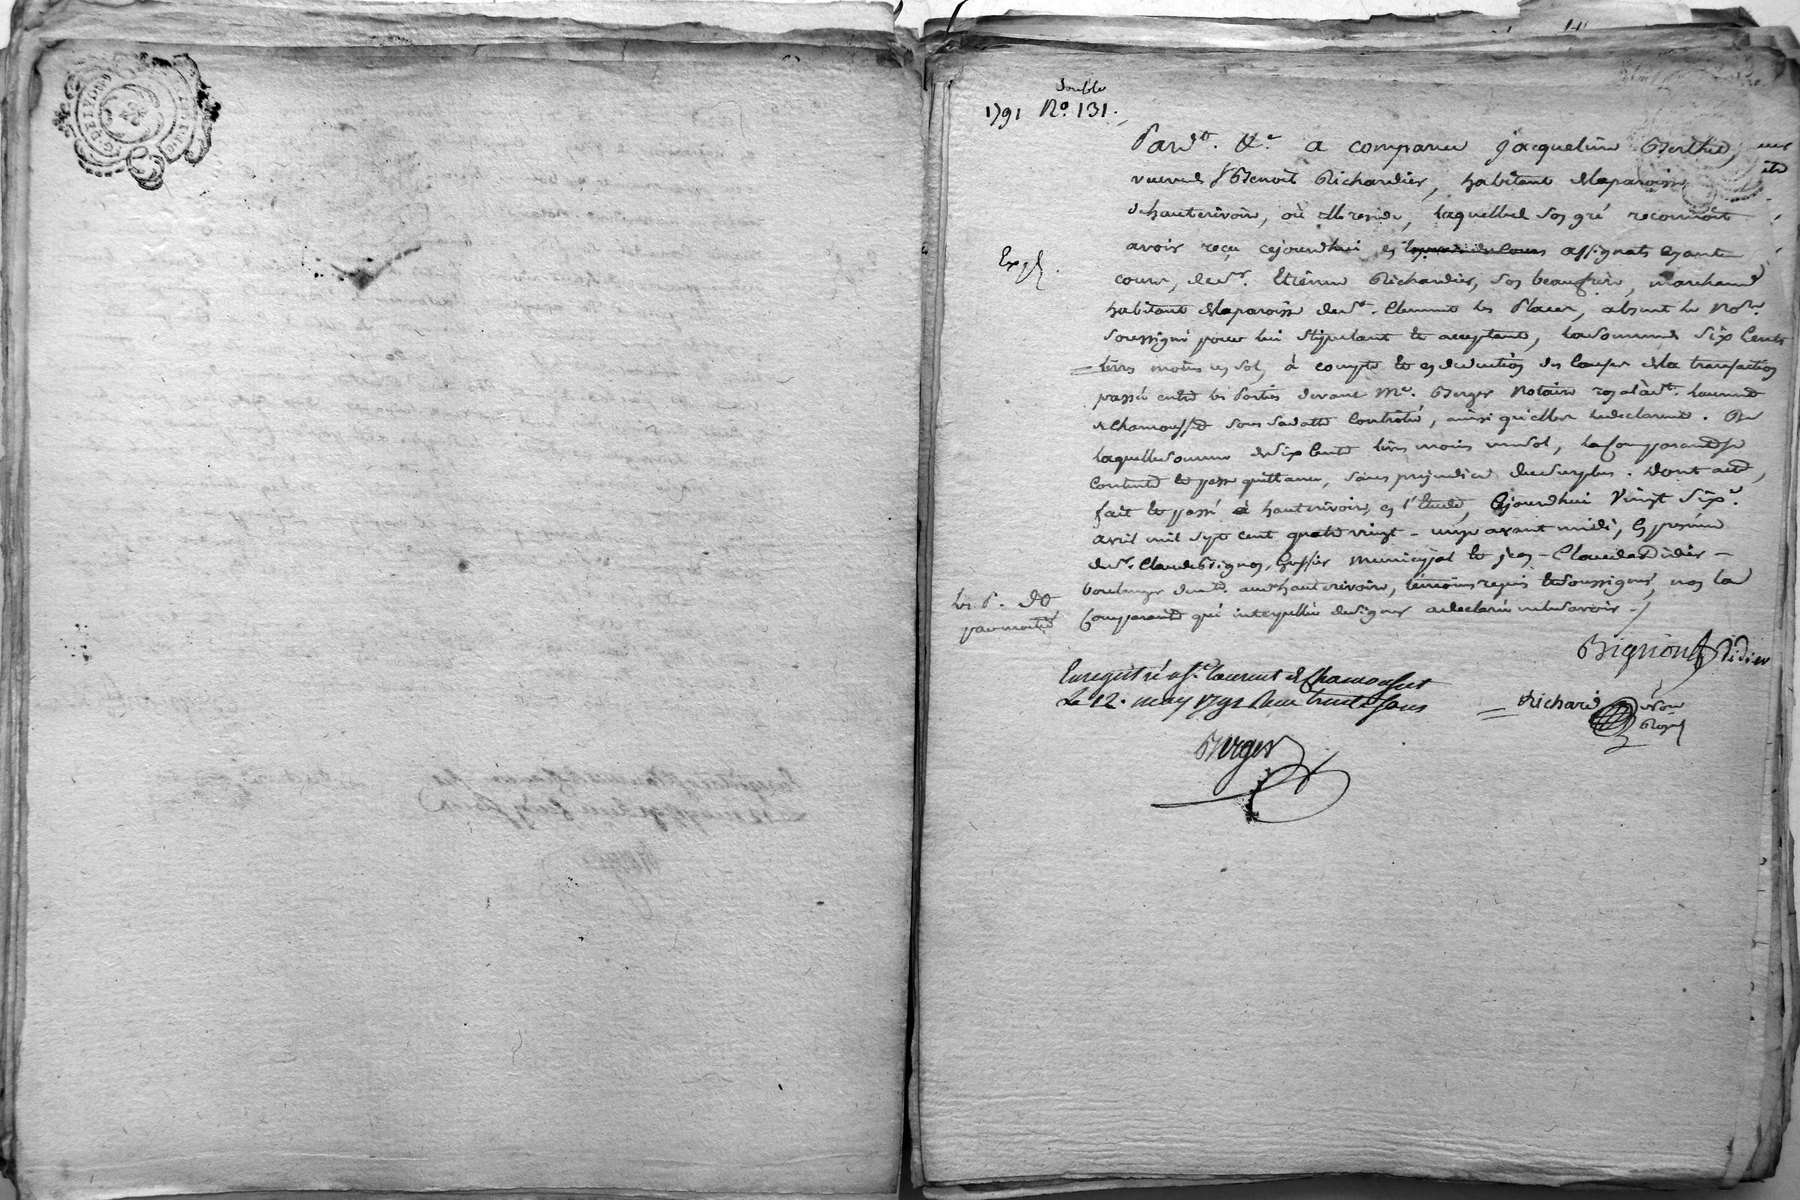 double
1791 No. 131.
Pardt. &c. a comparu Jacqueline Berthet,
veuve de Benoit Richardier, habitant de la paroisse
d'hauterivoire, où elle reside, laquelle de son gré reconnoit
avoir reçu cejourdhui, en assignats ayant
Expé.
cours, de sr. Etienne Richardier, son beaufrère, marchand
habitant de la paroisse de st. Clement les Places, absent le Nore.
soussigné pour lui stipulant et acceptant, la somme de six cents
livres moins un sol, à compte et en deduction des causes de la transaction
passée entre les parties devant Me. Berger Notaire royal à st. Laurent
de Chamousset sous sa date controlée, ainsi qu'elles le declarent. De
laquelle somme de six cents livres moins un sol, la comparante se
contente et passe quittance, sans prejudice du surplus. Dont acte,
fait et passé à hauterivoire en l'Etude, cejourdhui vingt six
avril mil sept cent quatre vingt-onze avant midi, en presence
de sr. Claude Bignon, Greffier municipal et Jean-Claude Didier
boulanger dudt. hauterivoire, témoins requis et soussignés, non la
comparante qui interpellée de signer a declaré ne le savoir.
les P. do
par moitié
Bignon Didier
Enregistré à St. Laurent de Chamousset
Le 12. may 1791 Reçu trente sous
Richard Nore
Royal
Berger